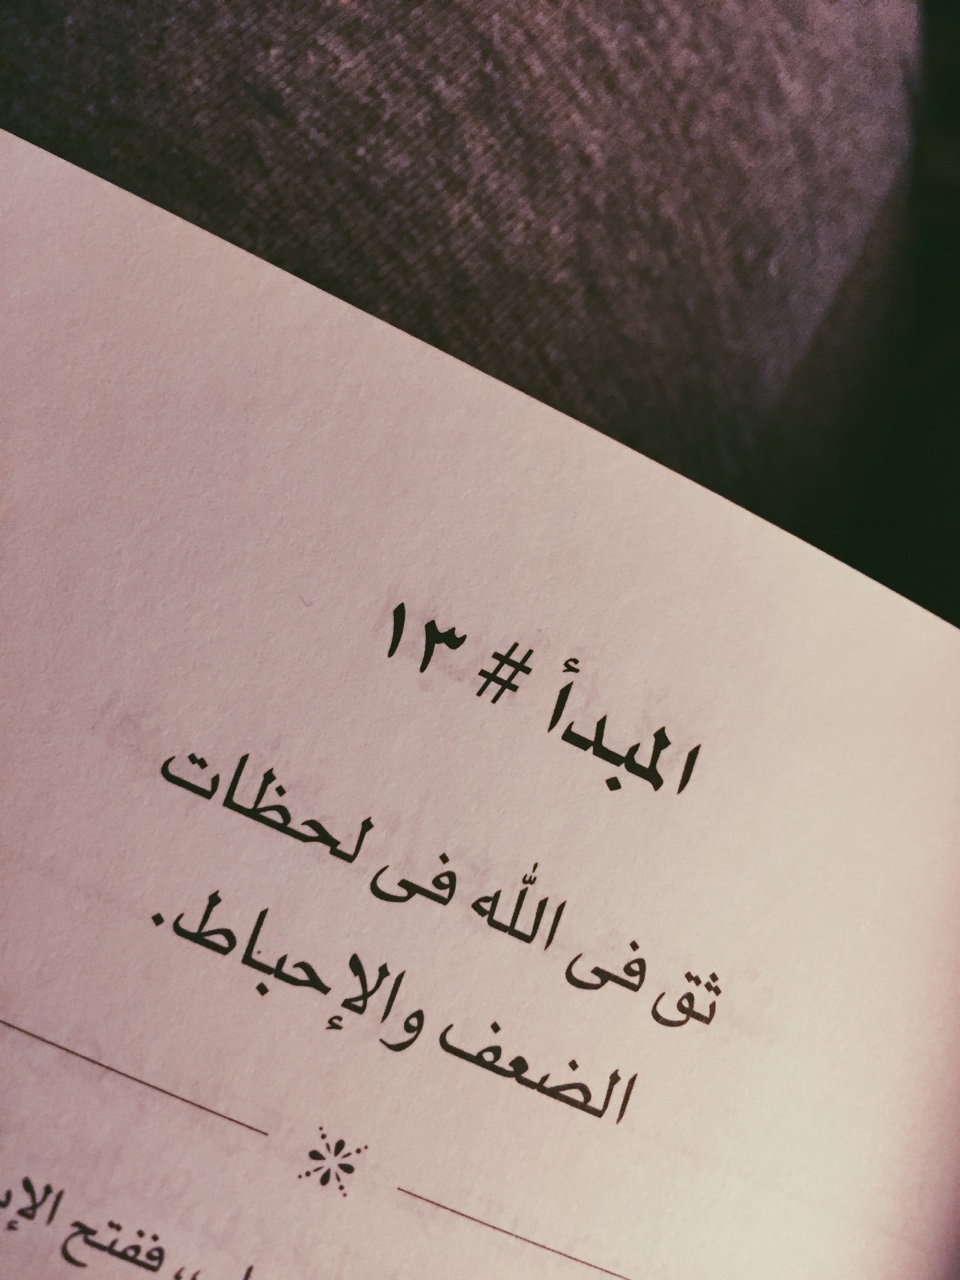 المبدأ # ١٣
ثق فى الله فى لحظات
الضعف والإحباط.
ففتح